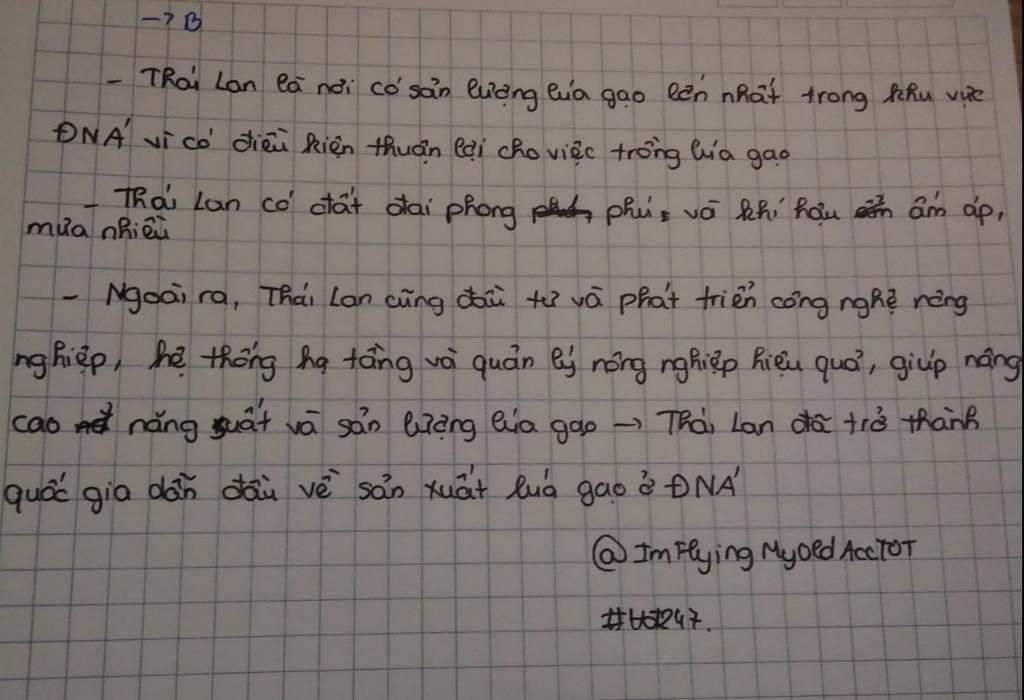 → B
- Thái Lan là nơi có sản lượng lúa gạo lớn nhất trong khu vực
ĐNÁ vì có điều kiện thuận lợi cho việc trồng lúa gạo
- Thái Lan có đất đai phong phú, và khí hậu ấm áp,
mưa nhiều
- Ngoài ra, Thái Lan cũng đầu tư và phát triển công nghệ nông
nghiệp, hệ thống hạ tầng và quản lý nông nghiệp hiệu quả, giúp nâng
cao năng suất và sản lượng lúa gạo → Thái Lan đã trở thành
quốc gia dẫn đầu về sản xuất luá gạo ở ĐNÁ
@ImFlyingMyOldAccTOT